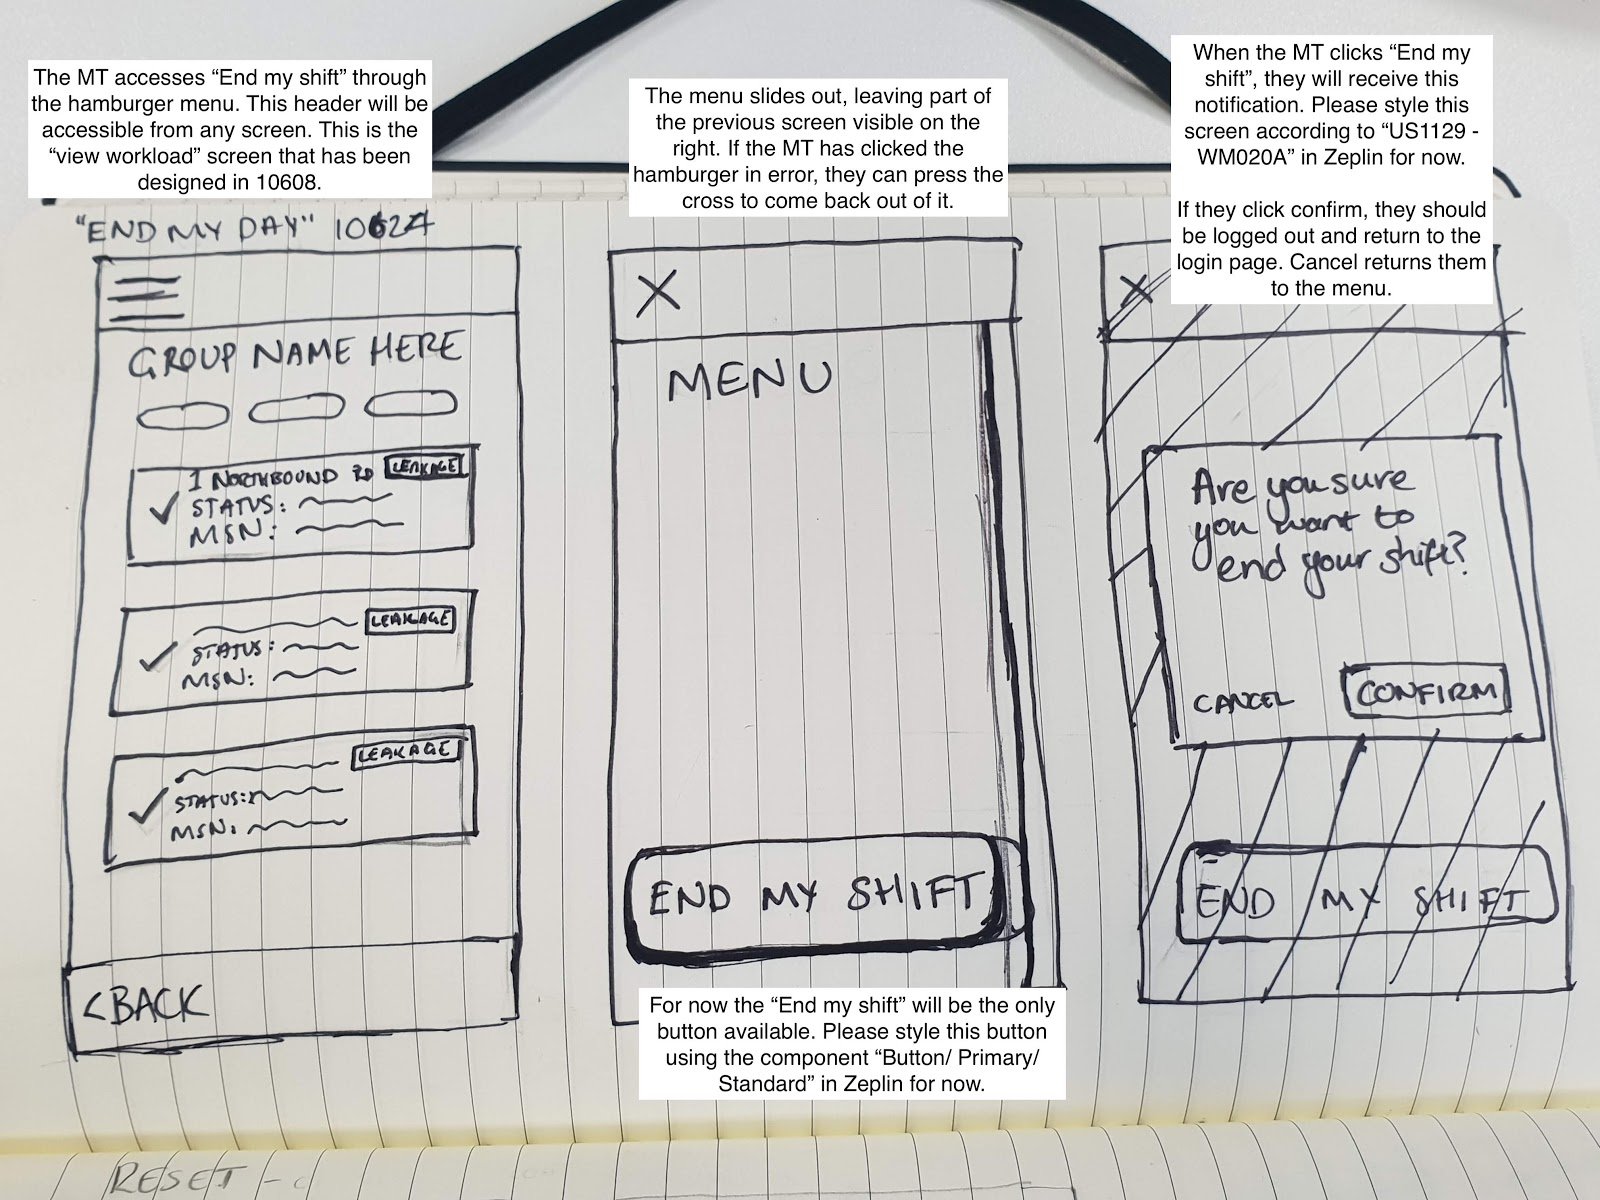 The MT accesses “End my shift” through
the hamburger menu. This header will be
accessible from any screen. This is the
“view workload” screen that has been
designed in 10608.
The menu slides out, leaving part of
the previous screen visible on the
right. If the MT has clicked the
hamburger in error, they can press the
cross to come back out of it.
When the MT clicks “End my
shift”, they will receive this
notification. Please style this
screen according to “US1129 -
WM020A” in Zeplin for now.
If they click confirm, they should
be logged out and return to the
login page. Cancel returns them
to the menu.
"END MY DAY" 10624
GROUP NAME HERE
1 NORTHBOUND RD LEAKAGE
STATUS:
MSN:
LEAKAGE
STATUS:
MSN:
LEAKAGE
STATUS:
MSN:
< BACK
X
MENU
END MY SHIFT
For now the “End my shift” will be the only
button available. Please style this button
using the component “Button/ Primary/
Standard” in Zeplin for now.
X
Are you sure
you want to
end your shift?
CANCEL CONFIRM
END MY SHIFT
RESET -